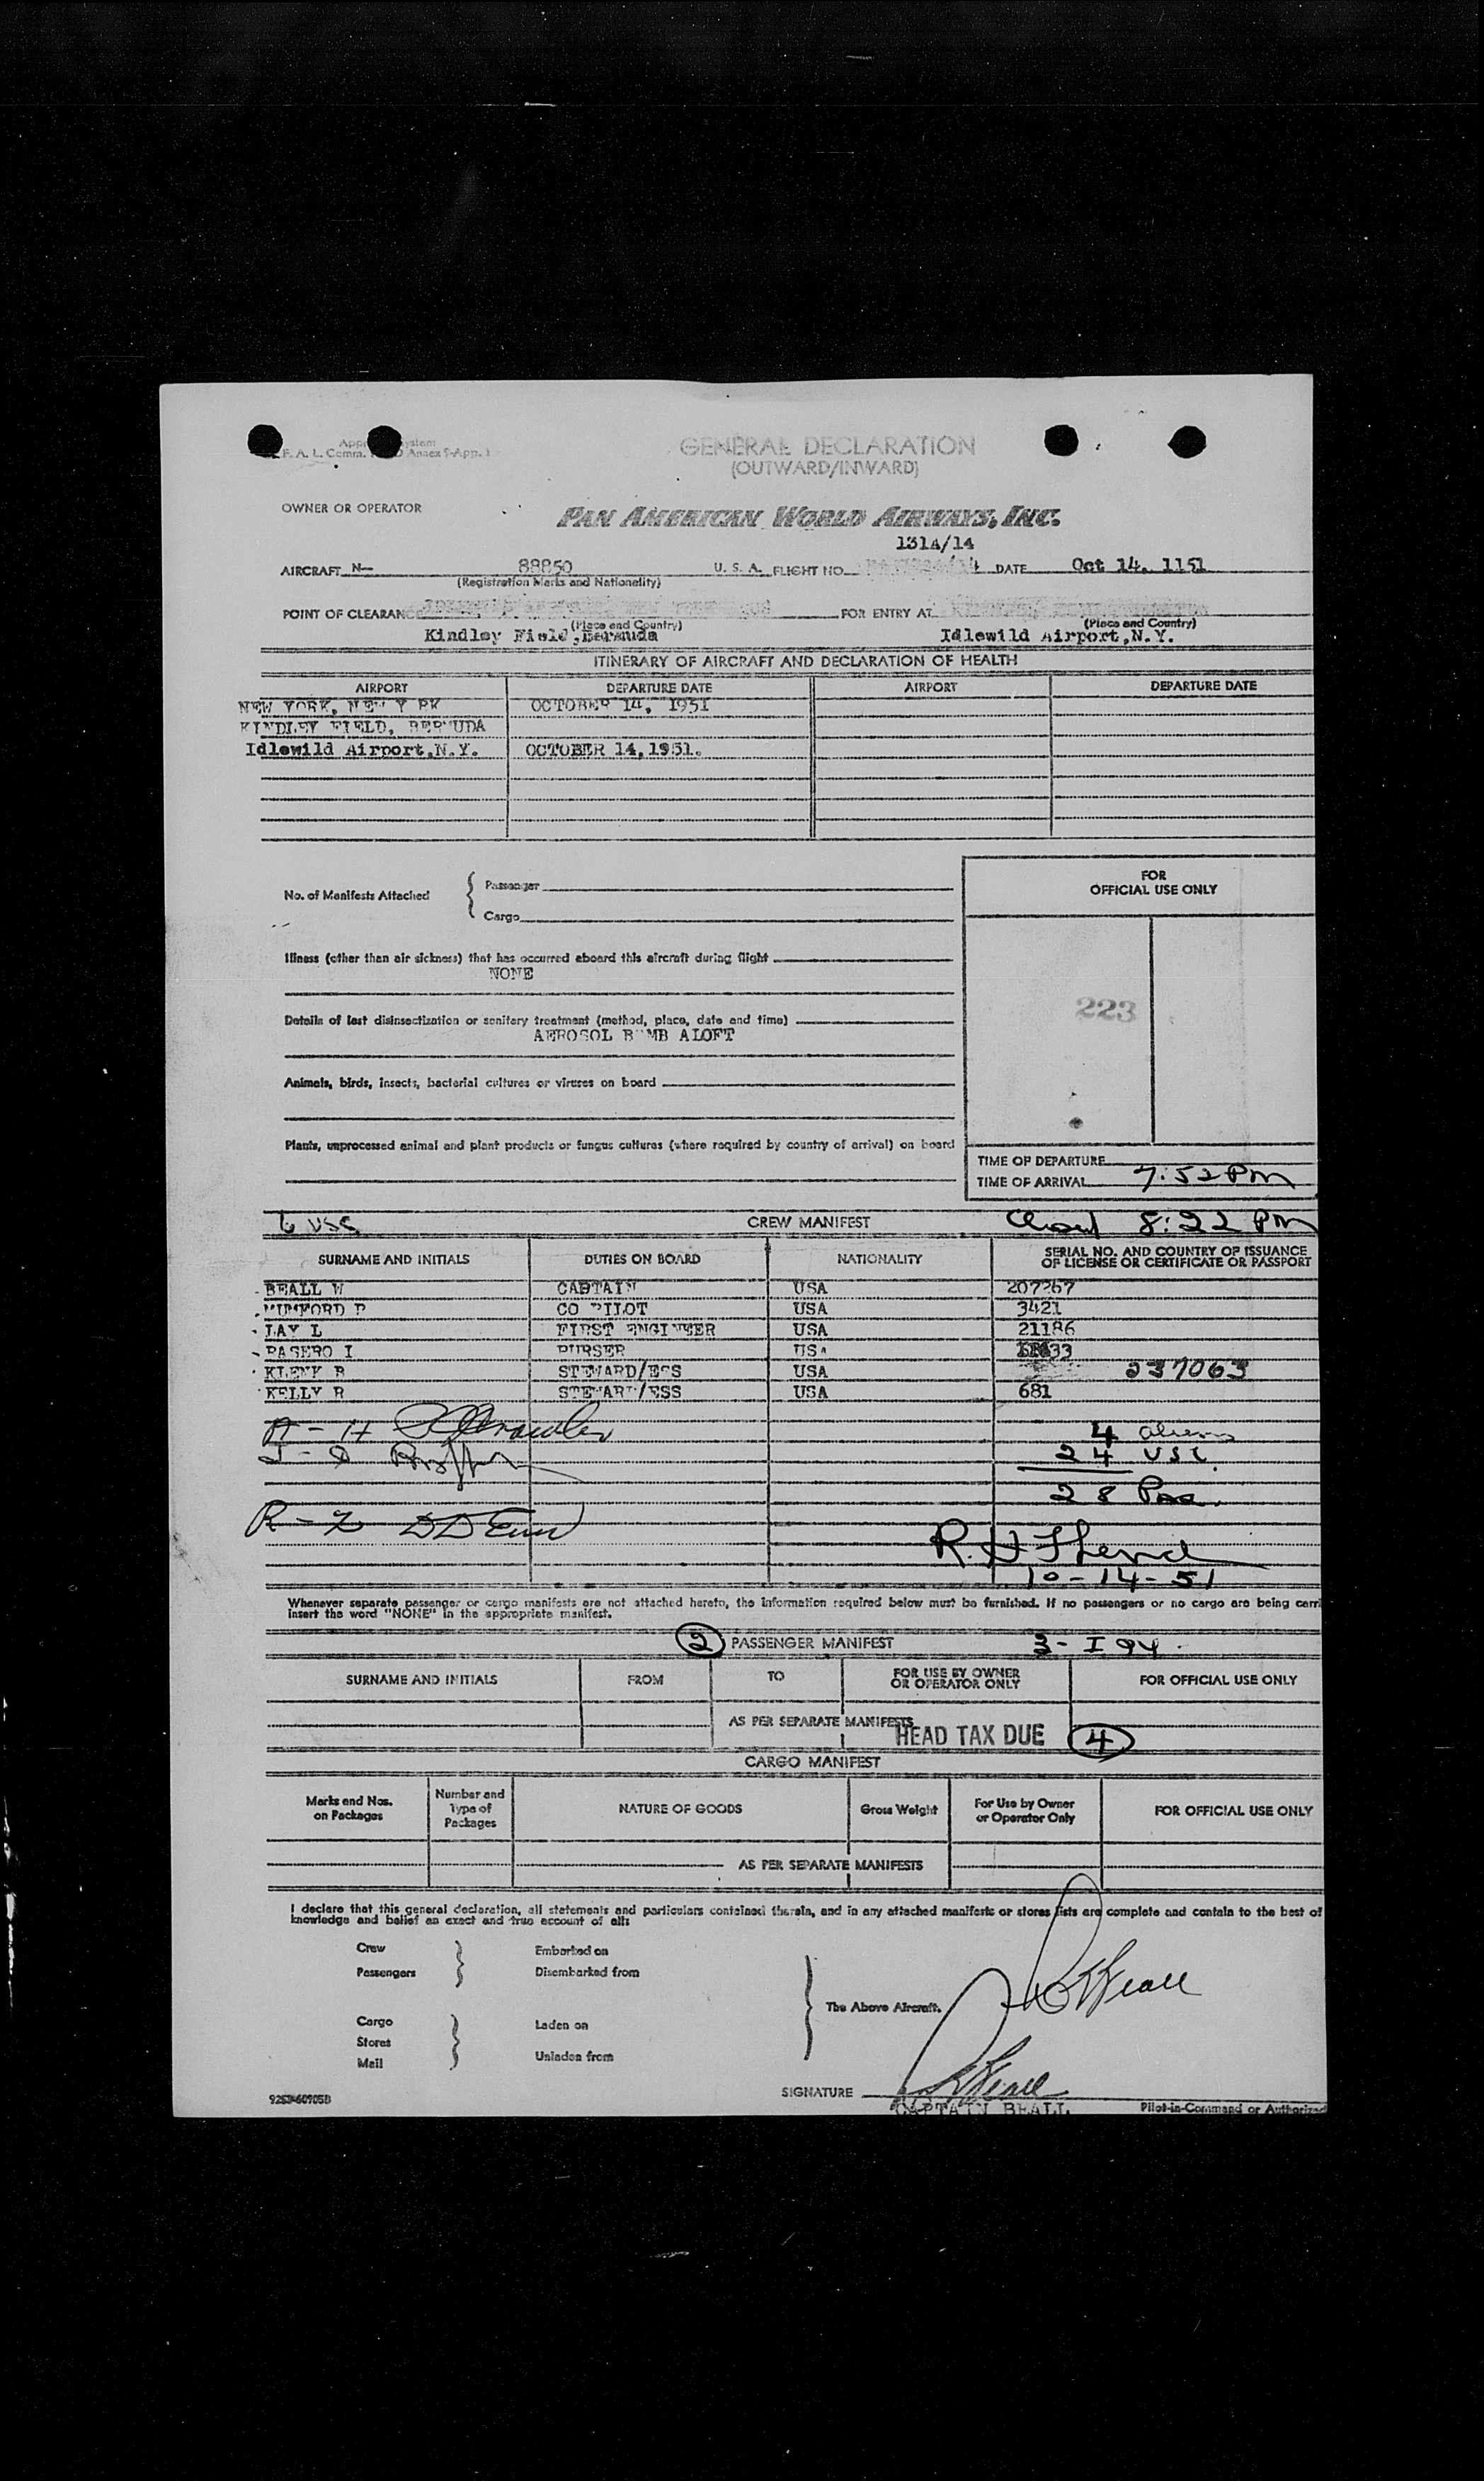 GENERAL DECLARATION
(OUTWARD/INWARD)
F. A. L. Comm. Annex 9-App. 1
OWNER OR OPERATOR
PAN AMERICAN WORLD AIRWAYS, INC.
131A/14
AIRCRAFT N- 88850 U. S. A. FLIGHT NO. DATE Oct 14, 1151
(Registration Marks and Nationality)
POINT OF CLEARANCE FOR ENTRY AT
(Place and Country) (Place and Country)
Kindley Field,Bermuda Idlewild Airport,N.Y.
ITINERARY OF AIRCRAFT AND DECLARATION OF HEALTH
AIRPORT DEPARTURE DATE AIRPORT DEPARTURE DATE
NEW YORK, NEW Y RK OCTOBER 14, 1951
KINDLEY FIELD, BERMUDA
Idlewild Airport,N.Y. OCTOBER 14,1951.
FOR
OFFICIAL USE ONLY
No. of Manifests Attached { Passenger
Cargo
Illness (other than air sickness) that has occurred aboard this aircraft during flight
NONE
223
Details of last disinsectization or sanitary treatment (method, place, date and time)
AEROSOL B MB ALOFT
Animals, birds, insects, bacterial cultures or viruses on board
Plants, unprocessed animal and plant products or fungus cultures (where required by country of arrival) on board
TIME OF DEPARTURE
TIME OF ARRIVAL 7:52 PM
6 USC CREW MANIFEST 8:22 PM
SURNAME AND INITIALS DUTIES ON BOARD NATIONALITY SERIAL NO. AND COUNTRY OF ISSUANCE
OF LICENSE OR CERTIFICATE OR PASSPORT
BEALL W CAPTAIN USA 207267
MUMFORD P CO PILOT USA 3421
LAY L FIRST ENGINEER USA 21186
PASERO I PURSER USA
KLENK B STEWARD/ESS USA 237063
KELLY R STEWARD/ESS USA 681
4 aliens
24 USC.
28 Pas.
10-14-51
Whenever separate passenger or cargo manifests are not attached hereto, the information required below must be furnished. If no passengers or no cargo are being carri
insert the word "NONE" in the appropriate manifest.
2 PASSENGER MANIFEST 3- I 94.
SURNAME AND INITIALS FROM TO FOR USE BY OWNER
OR OPERATOR ONLY FOR OFFICIAL USE ONLY
AS PER SEPARATE MANIFESTS
HEAD TAX DUE 4
CARGO MANIFEST
Marks and Nos.
on Packages Number and
Type of
Packages NATURE OF GOODS Gross Weight For Use by Owner
or Operator Only FOR OFFICIAL USE ONLY
AS PER SEPARATE MANIFESTS
I declare that this general declaration, all statements and particulars contained therein, and in any attached manifests or stores lists are complete and contain to the best of
knowledge and belief an exact and true account of all:
Crew Embarked on
Passengers Disembarked from
The Above Aircraft.
Cargo Laden on
Stores
Mail Unladen from
SIGNATURE
CAPTAIN BEALL
Pilot-in-Command or Authorized
9253-60905B